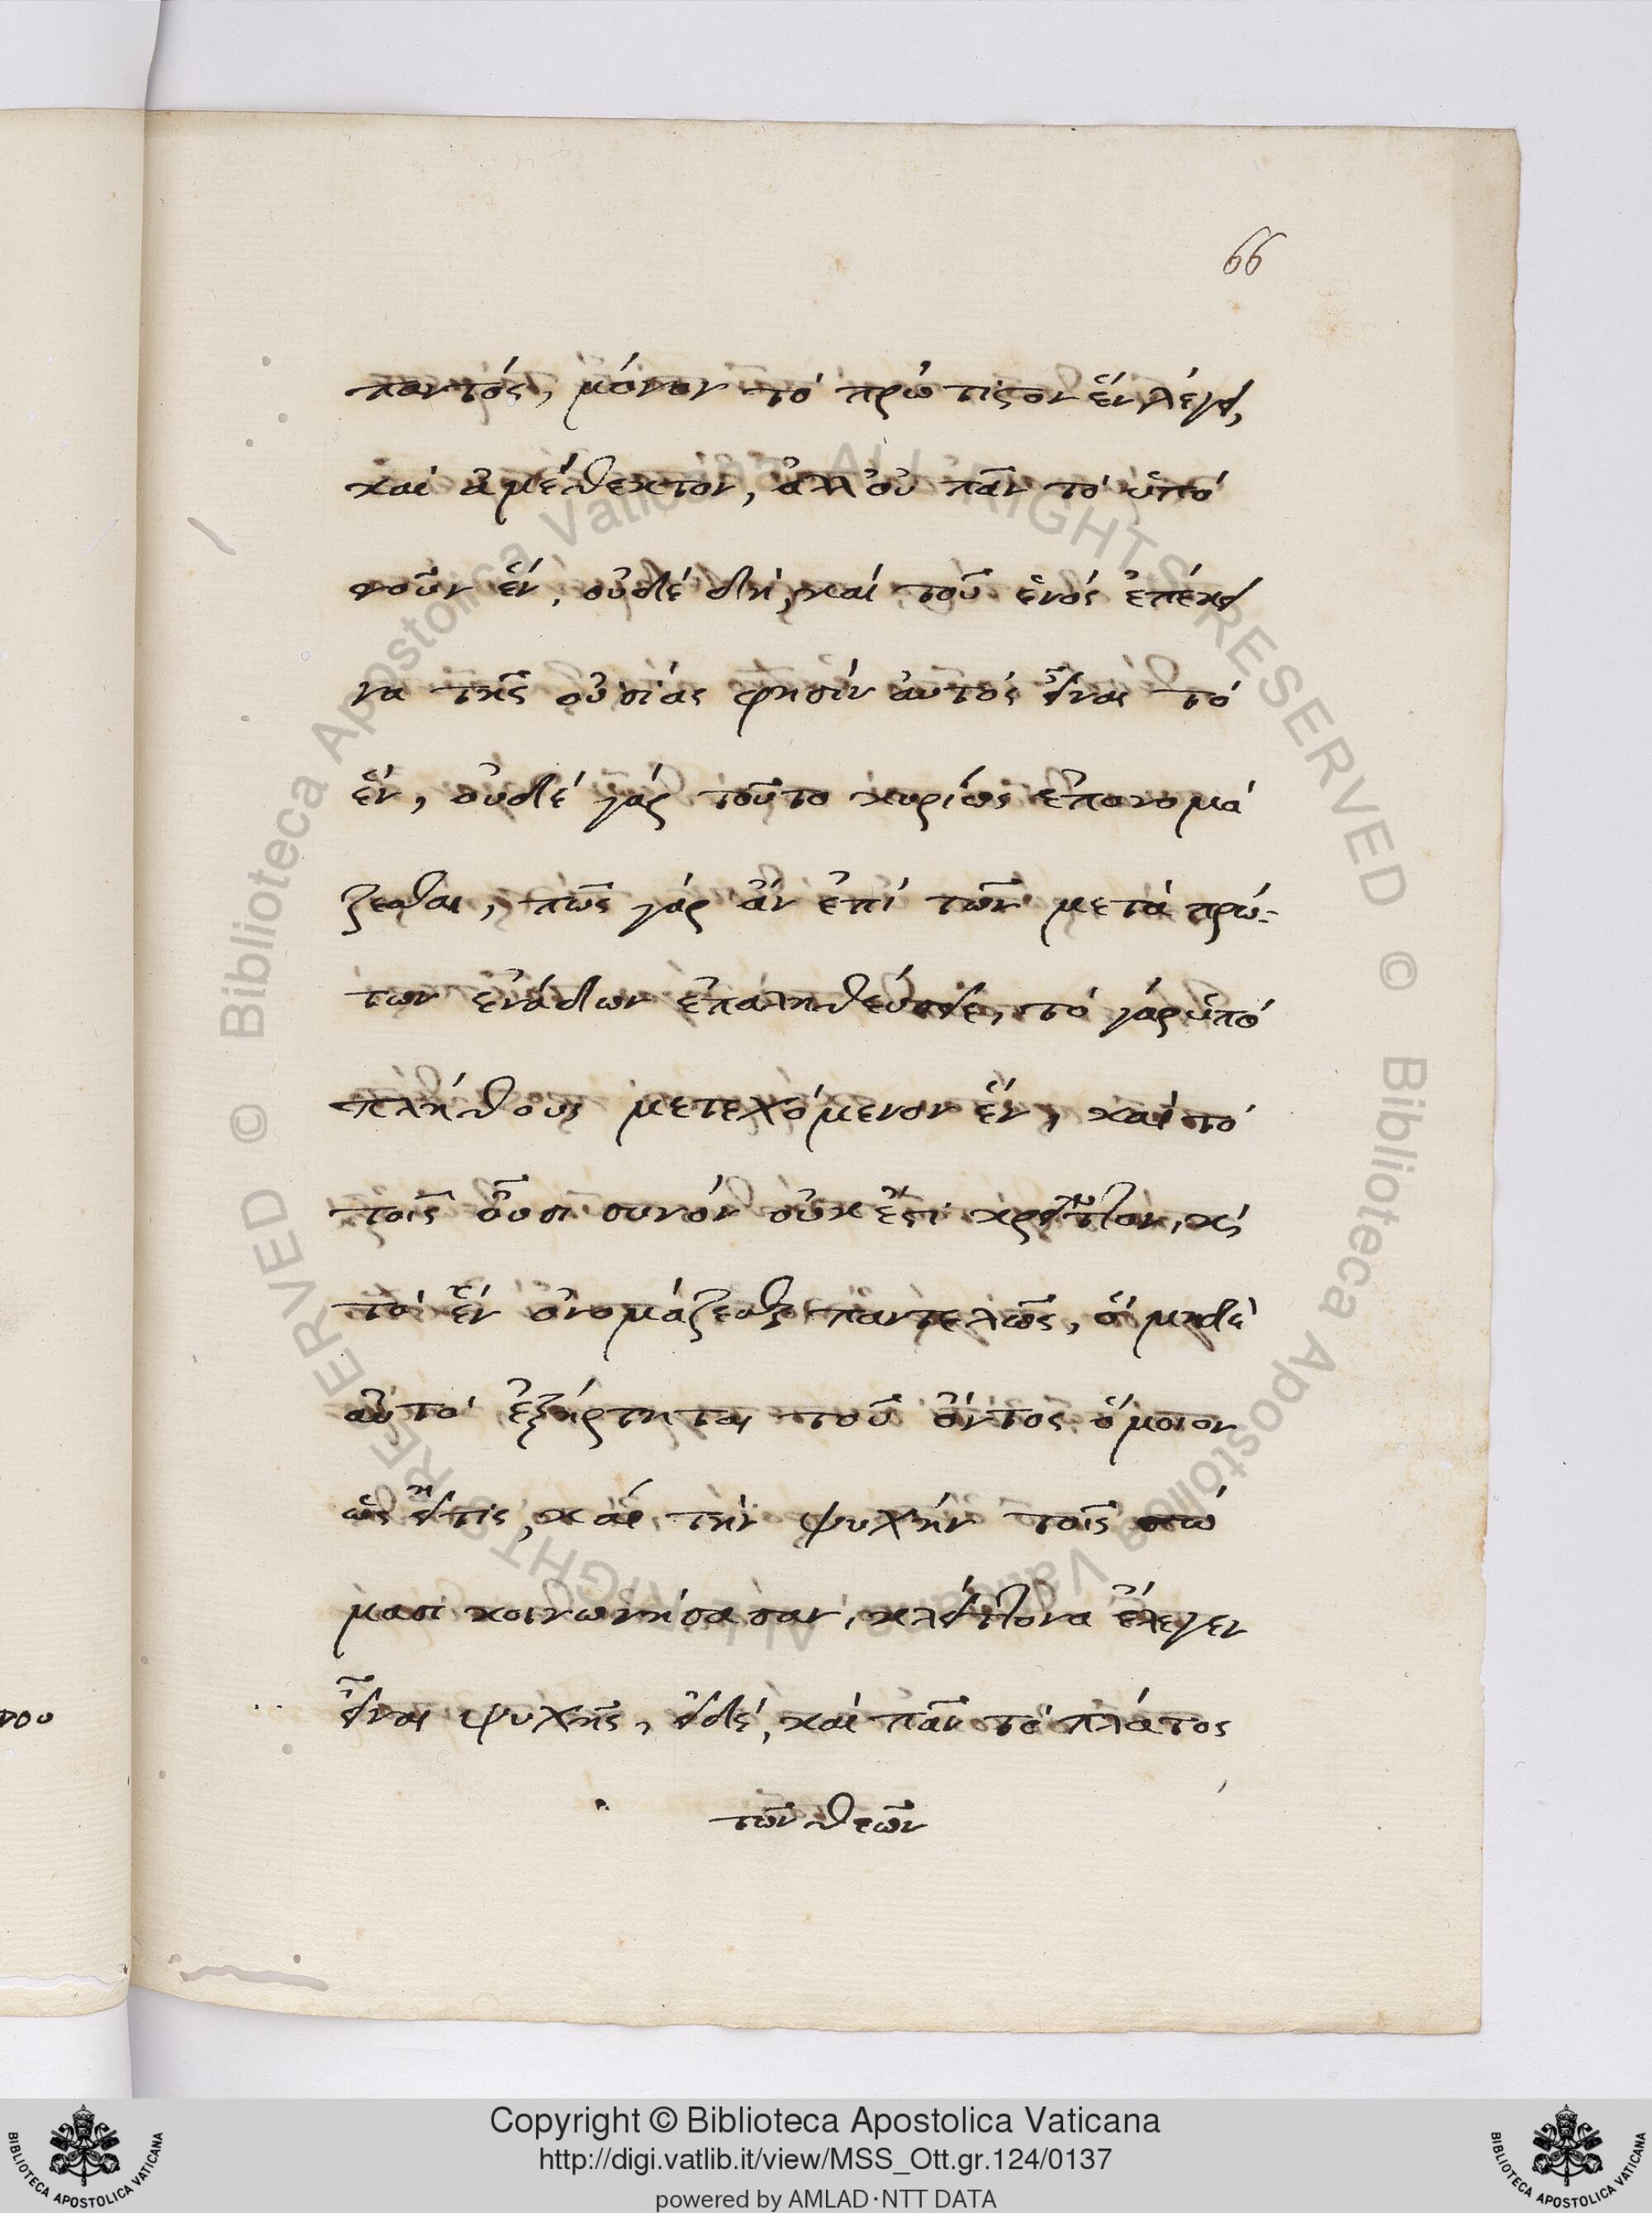 66
παντός, μόνον τὸ πρώτιςον ἕν λέγει,
καὶ ἀμέθεκτον, ἀλλ' οὐ πᾶν τὸ ὑπὸ
νοῦν ἕν, οὐδὲ δὴ, καὶ τοῦ ἑνός ἐπέκει
να τῆς οὐσίας φησὶν αὐτὸς εἶναι τὸ
ἕν, οὐδὲ γὰρ τοῦτο κυρίως ἐπονομά
ζεσθαι, πῶς γὰρ ἂν ἐπὶ τῶν μετὰ πρώ-
των ἑνάδων ἐπαληθεύσειε, τὸ γὰρ ὑπὸ
πλήθους μετεχόμενον ἕν, καὶ τὸ
τοῖς οὖσι συνὸν οὐκ ἔςι κρεῖττον, κὶ
τὸ ἕν ὀνομάζεσθαι παντελῶς, ὃ μηδὲ
αὐτὸ ἐξήρτηται τοῦ ὄντος ὅμοιον
ὡς εἴ τις, καὶ τὴν ψυχὴν τοῖς σώ
μασι κοινωνήσασαν, κλείττονα ἔλεγεν
εἶναι ψυχῆς, εἰ δὲ, καὶ πᾶν τὸ πλάτος
τῶν θεῶν
νου
Copyright © Biblioteca Apostolica Vaticana
http://digi.vatlib.it/view/MSS_Ott.gr.124/0137
powered by AMLAD·NTT DATA
BIBLIOTECA APOSTOLICA VATICANA
BIBLIOTECA APOSTOLICA VATICANA
© Biblioteca Apostolica Vaticana ALL RIGHTS RESERVED
© Biblioteca Apostolica Vaticana ALL RIGHTS RESERVED